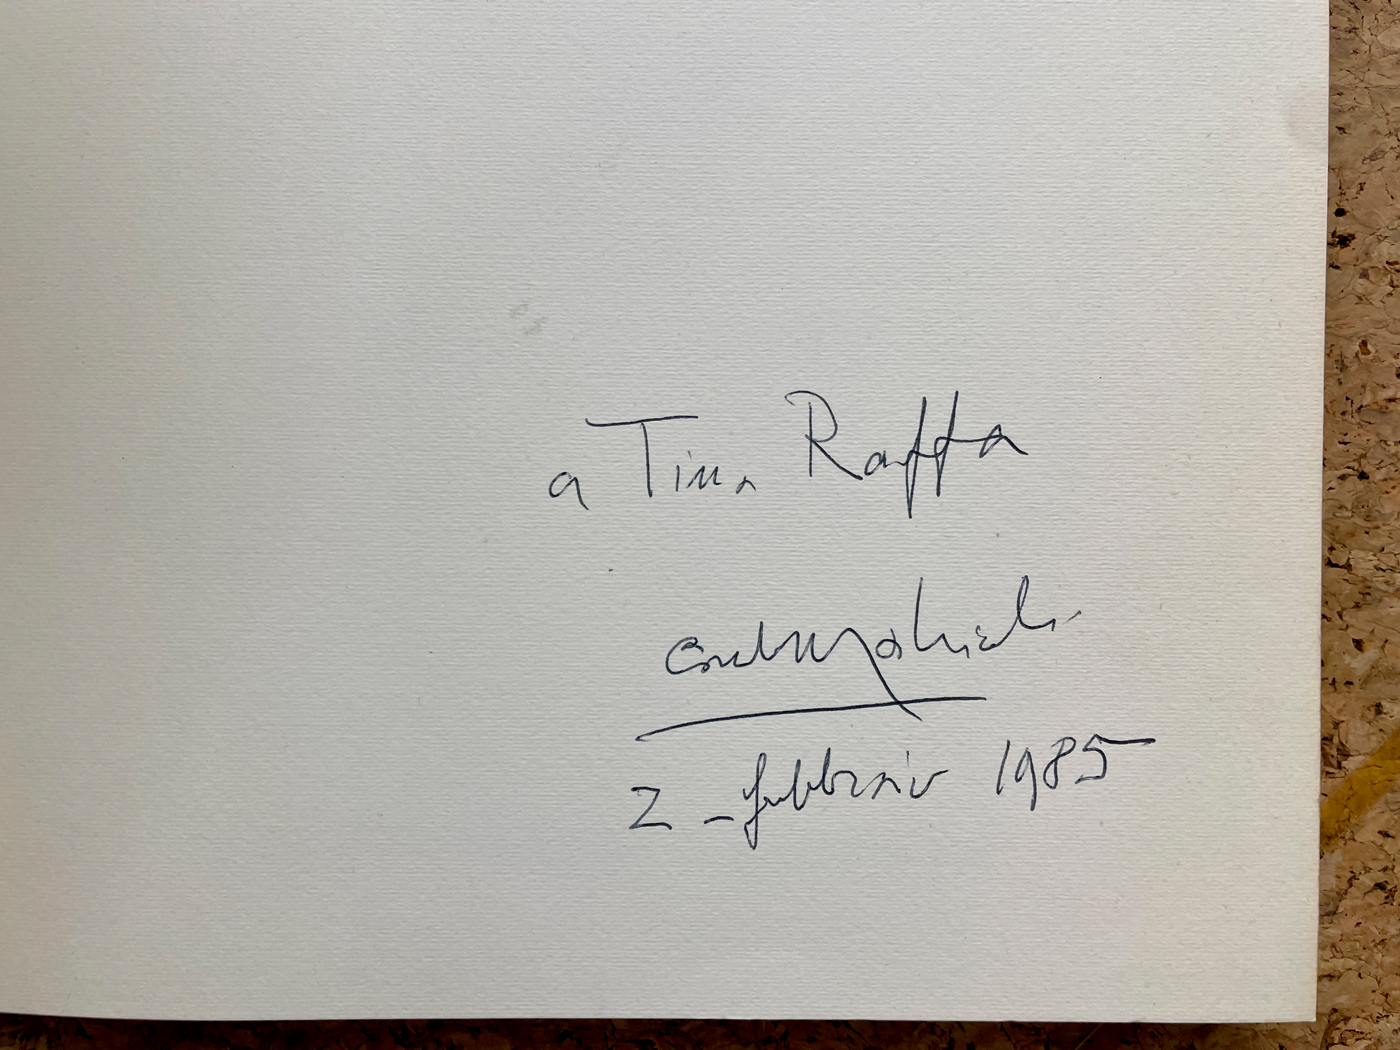 a Tina Raffa
2 - febbraio 1985